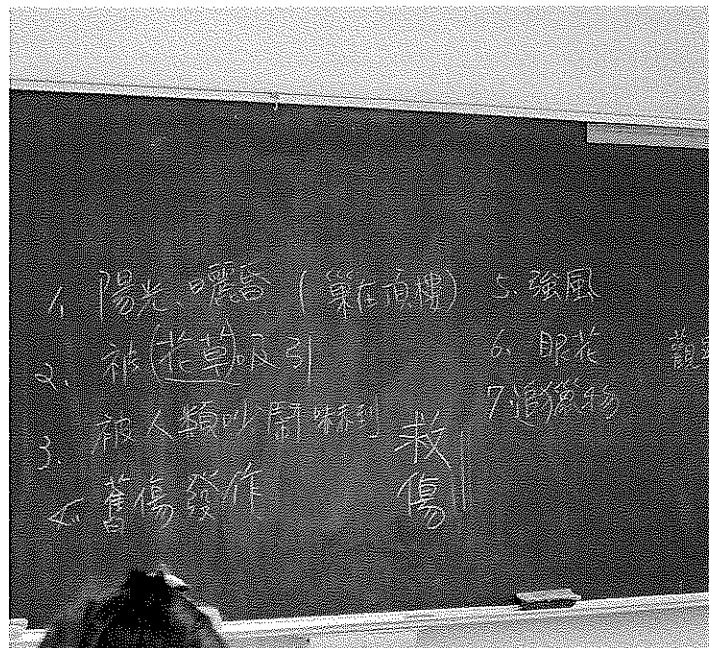 1. 陽光、曬昏 (巢在頂樓)
2. 被(花草)吸引
3. 被人類吵鬧嚇到
4. 舊傷發作
救傷
5. 強風
6. 眼花
7. 追獵物
觀